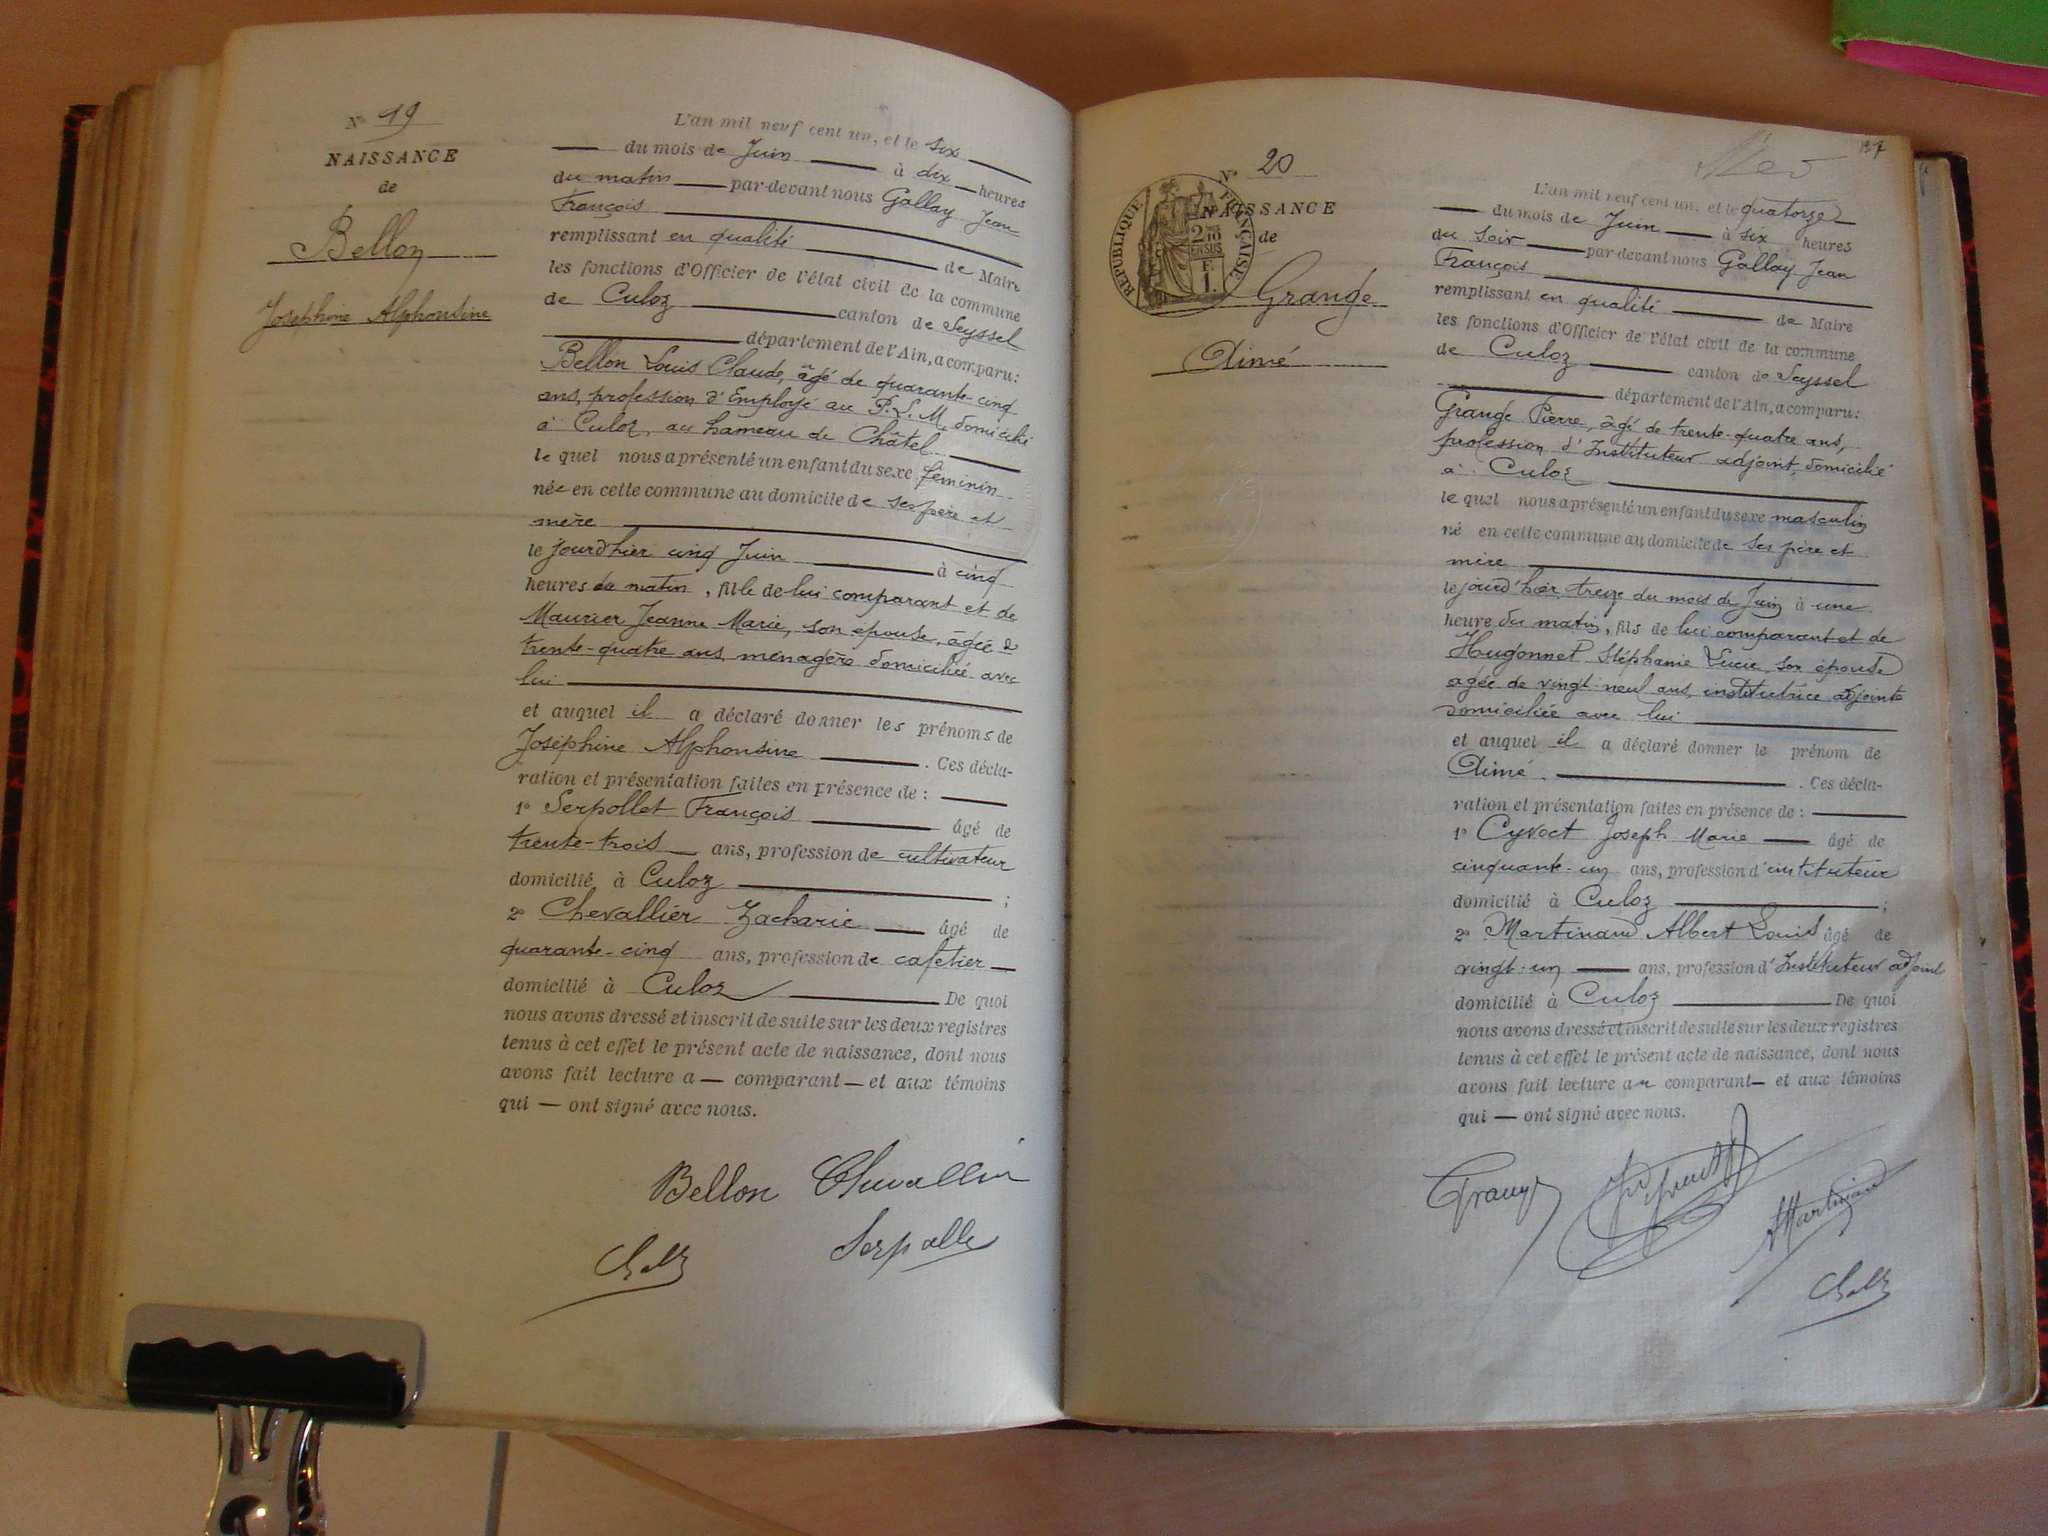 N° 19
NAISSANCE
de
Bellon
Joséphine Alphonsine
L'an mil neuf cent un, et le six
du mois de Juin à dix heures
du matin par-devant nous Gallay Jean
François
remplissant en qualité de Maire
les fonctions d'Officier de l'état civil de la commune
de Culoz canton de Seyssel
département de l'Ain, a comparu:
Bellon Louis Claude, âgé de quarante-cinq
ans, profession d'Employé au P.L.M. domicilié
à Culoz, au hameau de Châtel
lequel nous a présenté un enfant du sexe féminin
née en cette commune au domicile de ses père et
mère
le jourd'hier cinq Juin à cinq
heures du matin, fille de lui comparant et de
Maurier Jeanne Marie, son épouse, âgée de
trente-quatre ans, ménagère domiciliée avec
lui
et auquel il a déclaré donner les prénoms de
Joséphine Alphonsine. Ces décla-
ration et présentation faites en présence de :
1° Serpollet François âgé de
trente-trois ans, profession de cultivateur
domicilié à Culoz ;
2° Chevallier Zacharie âgé de
quarante-cinq ans, profession de cafetier
domicilié à Culoz De quoi
nous avons dressé et inscrit de suite sur les deux registres
tenus à cet effet le présent acte de naissance, dont nous
avons fait lecture a comparant et aux témoins
qui ont signé avec nous.
Bellon Chevallier
Serpolle
127
N° 20
RÉPUBLIQUE FRANÇAISE
2/10 EN SUS
F. 1.
NAISSANCE
de
Grange
Aimé
L'an mil neuf cent un, et le quatorze
du mois de Juin à six heures
du soir par-devant nous Gallay Jean
François
remplissant en qualité de Maire
les fonctions d'Officier de l'état civil de la commune
de Culoz canton de Seyssel
département de l'Ain, a comparu:
Grange Pierre, âgé de trente-quatre ans,
profession d'Instituteur adjoint, domicilié
à Culoz
lequel nous a présenté un enfant du sexe masculin
né en cette commune au domicile de ses père et
mère
le jourd'hier treize du mois de Juin à une
heure du matin, fils de lui comparant et de
Hugonnet Stéphanie Lucie son épouse
agée de vingt-neuf ans, institutrice adjointe
domiciliée avec lui
et auquel il a déclaré donner le prénom de
Aimé. Ces décla-
ration et présentation faites en présence de :
1° Cyvoct Joseph Marie âgé de
cinquante-un ans, profession d'instituteur
domicilié à Culoz ;
2° Martinand Albert Louis âgé de
vingt-un ans, profession d'Instituteur adjoint
domicilié à Culoz De quoi
nous avons dressé et inscrit de suite sur les deux registres
tenus à cet effet le présent acte de naissance, dont nous
avons fait lecture au comparant et aux témoins
qui ont signé avec nous.
Grange Martinand